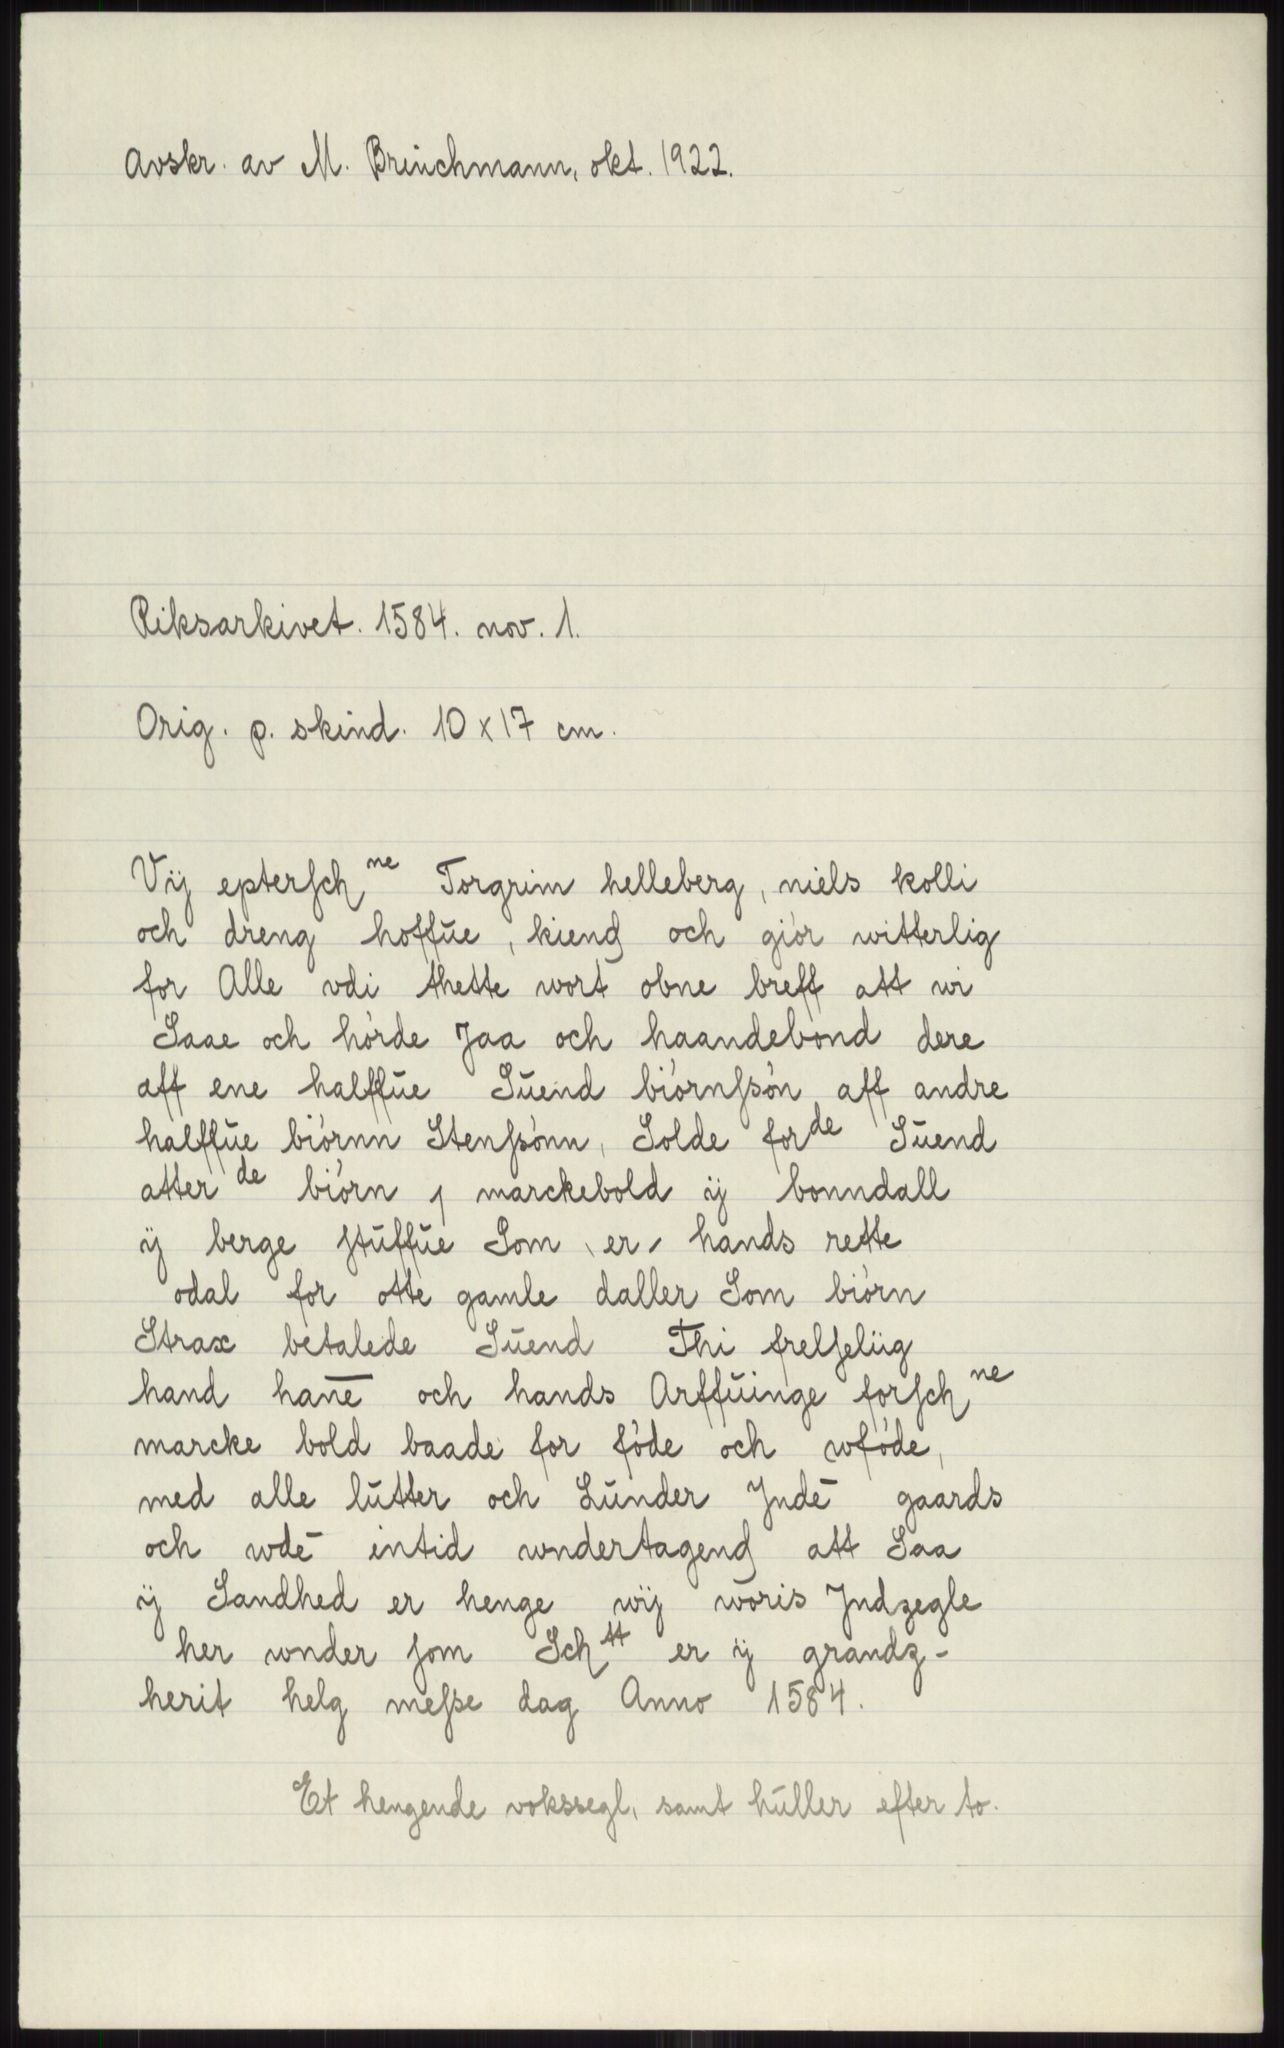 Avskr. av M. Brinchmann, okt. 1922.
Riksarkivet. 1584. nov. 1.
Orig. p. skind. 10 x 17 cm.
Vÿ epterſch ne Torgrim helleberg, niels kolli
och dreng hoffūe, kiend och giór witterlig
for Alle vdi thette wort obne breff att wi
Saae och hórde Jaa och haandebónd dere
aff ene halffūe Sūend biórnſsón aff andre
halffūe biórnn Stenſsónn, Solde forde Sūend
atter de biórn 1 marckebold ÿ bonndall
ÿ berge ſtūffūe Som er hands rette
odal for otte gamle daller Som biórn
Strax betalede Sūend Thi frelſeliig
hand hanē och hands Arffūinge forſch ne
marcke bold baade for fóde och wfóde,
med alle lūtter och Lūnder Jndē gaards
och wdē intid wndertagend att Saa
ÿ Sandhed er henge wÿ wōris Jndzegle
her wnder ſom Sch tt er ÿ grandz-
herit helg meſse dag Anno 1584.
Et hengende vokssegl, samt hūller efter to.